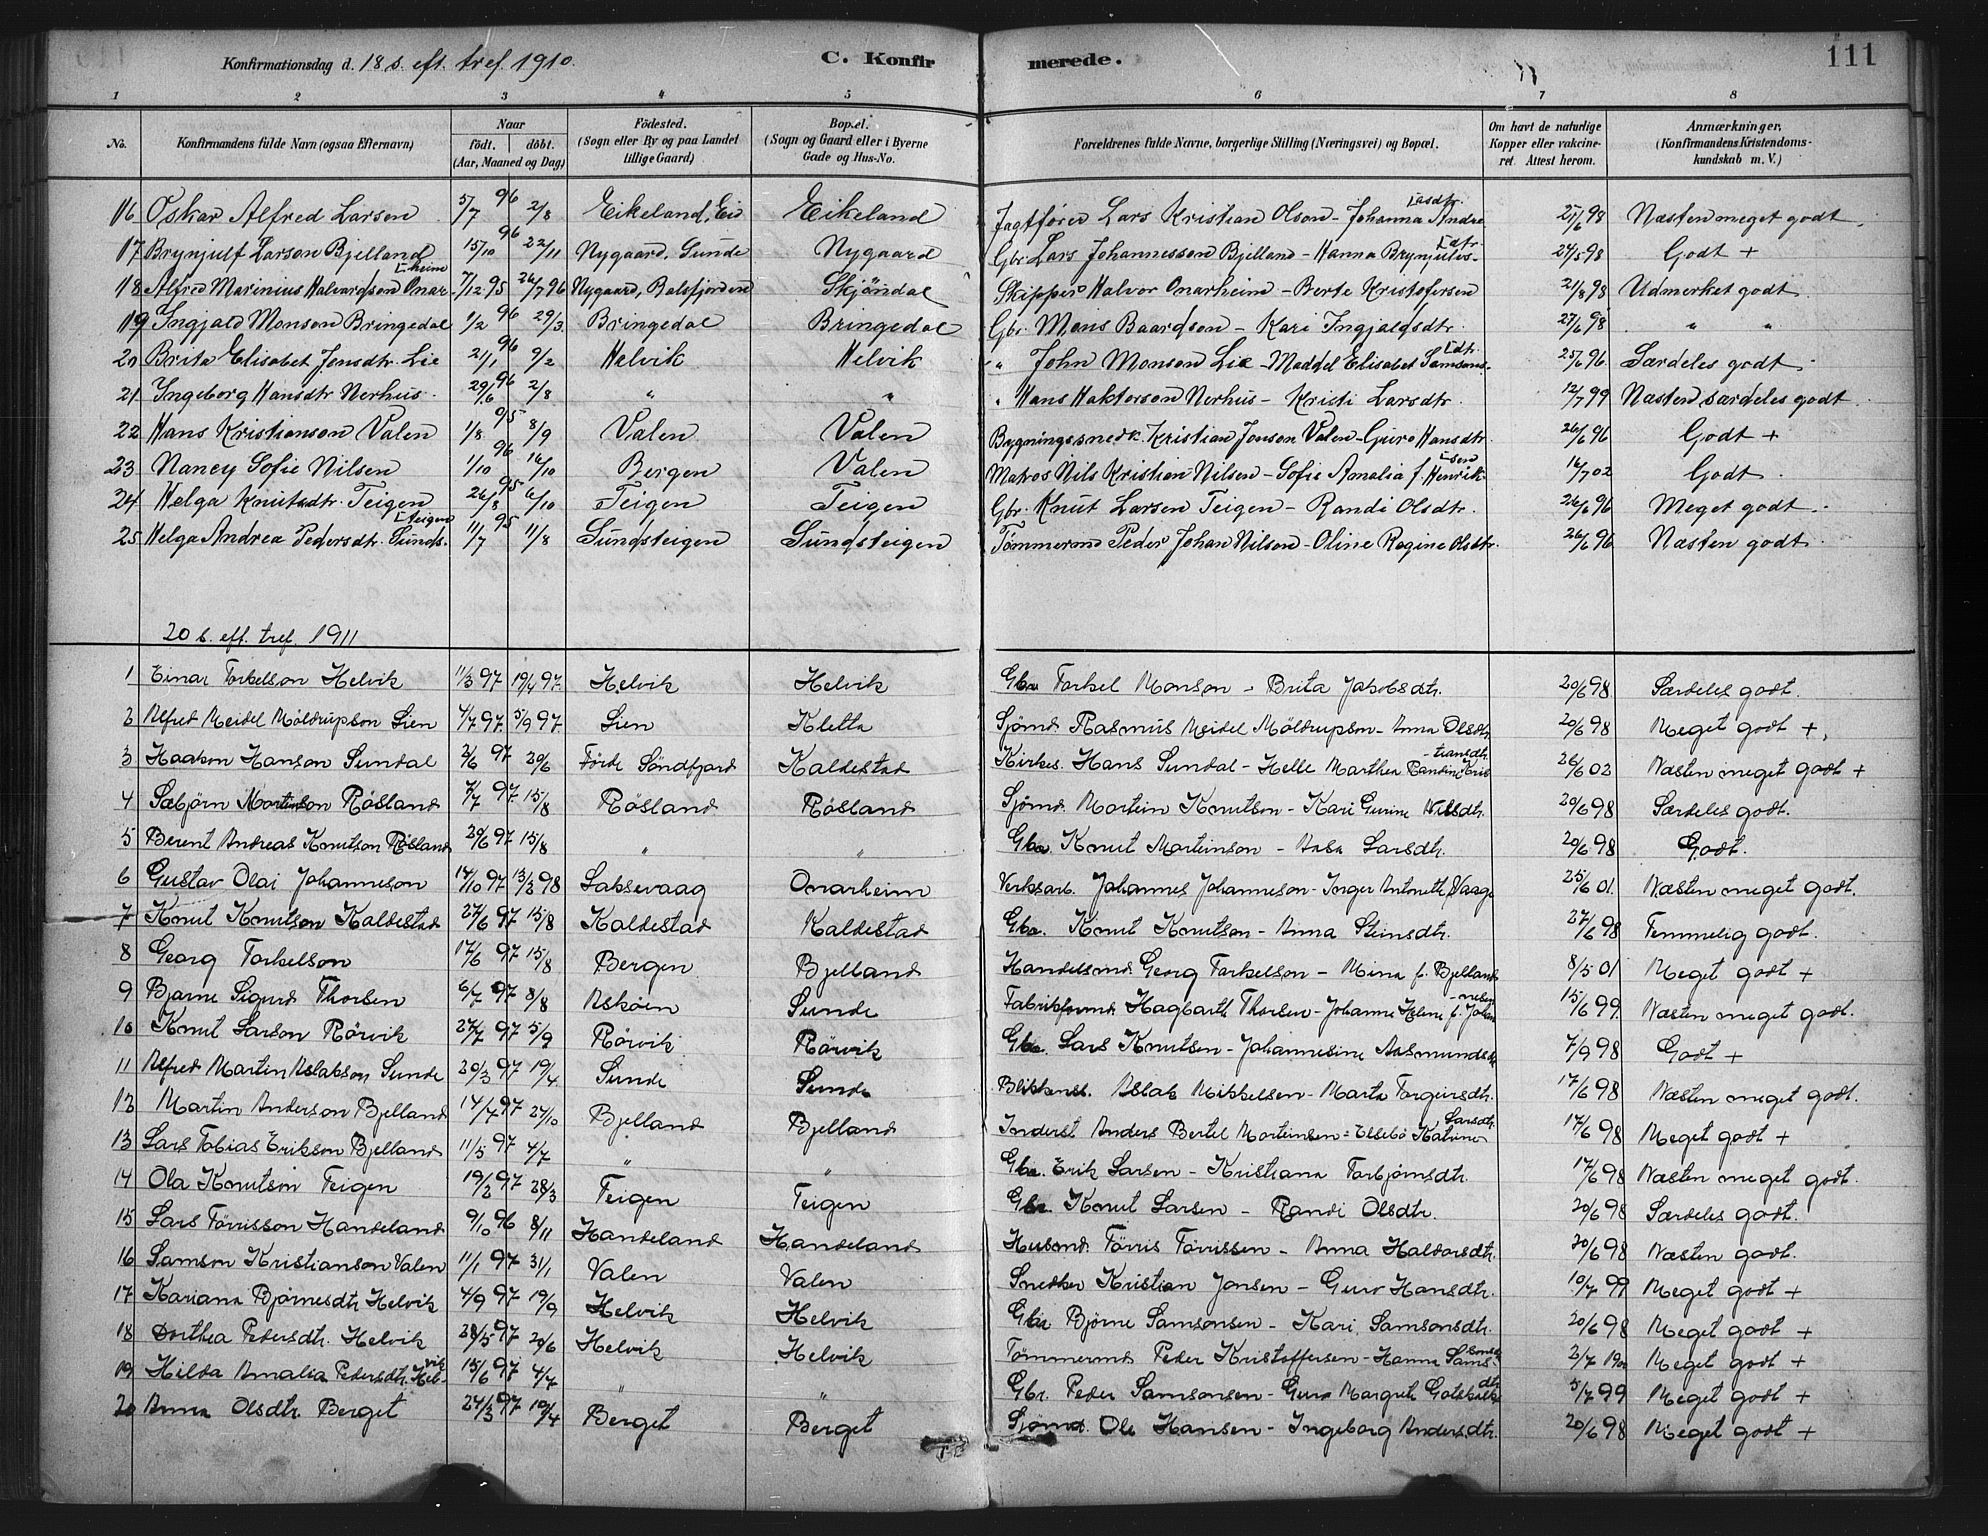 Konfirmationsdag d. 18 s. eft. tref. 1910.
C. Konfirmerede.
111
1 2 3 4 5 6 7 8
No. | Konfirmandens fulde Navn (ogsaa Efternavn) | Naar født. døbt. (Aar, Maaned og Dag) | Födested. (Sogn eller By og paa Landet tillige Gaard) | Bopæl. (Sogn og Gaard eller i Byerne Gade og Hus-No. | Forældrenes fulde Navne, borgerlige Stilling (Næringsvei) og Bopæl. | Om havt de naturlige Kopper eller vakcineret. Attest herom. | Anmærkninger. (Konfirmandens Kristendomskundskab m. V.)
16 Oskar Alfred Larsen 5/7 96 2/8 Eikeland, Eid Eikeland Jagtfører Lars Kristian Olson - Johanna Andreasdtr. 25/6 98 Næsten meget godt.
17 Brynjulf Larson Bjelland 15/10 96 22/11 Nygaard, Sunde Nygaard Gbr. Lars Johannesson Bjelland - Hanna Brynjulvsdtr. 24/5 98 Godt +
18 Alfred Marinius Halvardson Onarheim 7/12 95 26/7 96 Nygaard, Balsfjorden Skjöndal Skipper Halvor Onarheim - Berte Kristofersen 21/8 98 Udmerket godt
19 Ingjald Monson Bringedal 1/2 96 29/3 Bringedal Bringedal Gbr. Mons Baardson - Kari Ingjaldsdtr. 27/6 98 " "
20 Brita Elisabet Jonsdtr. Lie 21/1 96 9/2 Helvik Helvik " John Monson Lie - Maddel Elisabet Samsonsdtr. 25/6 96 Særdeles godt
21 Ingeborg Hansdtr Nerhus 29/6 96 2/8 " " " Hans Haktorson Nerhus - Kristi Larsdtr. 12/7 99 Næsten særdeles godt.
22 Hans Kristianson Valen 1/8 95 8/9 Valen Valen Bygningssnedk. Kristian Jonson Valen - Guro Hansdtr. 26/6 96 Godt +
23 Nancy Sofie Nilsen 1/10 96 16/10 Bergen Valen Matros Nils Kristian Nilsen - Sofie Amalia f. Henriksen 16/7 02 Godt
24 Helga Knutsdtr. Teigen 26/8 95 6/10 Teigen Teigen Gbr. Knut Larsen Teigen - Randi Olsdtr. 26/6 96 Meget godt
25 Helga Andrea Pedersdtr. Sundsteigen 11/7 95 11/8 Sundsteigen Sundsteigen Tømmermd Peder Johan Nilson - Oline Regine Olsdtr. 26/6 96 Næsten godt
20 s. eft. tref. 1911
1 Einar Torkelson Helvik 11/3 97 19/4 97. Helvik Helvik Gbr. Torkel Monson - Brita Jakobsdtr. 20/6 98. Særdeles godt.
2 Alfred Meidel Möldrupson Lien 4/7 97. 5/9 97. Lien Kletta Sjömd. Rasmus Meidel Möldrupson - Anna Olsdtr. 20/6 98 Meget godt +
3 Haakon Hanson Sundal 2/6 97 20/6 Förde Söndfjord Kaldestad Kirkes. Hans Sundal - Helle Marthea Randine Kristiansdtr. 26/6 02 Næsten meget godt +
4 Sæbjörn Morteinson Rösland 7/7 97 15/8 Rösland Rösland Sjömd. Mortein Knutson - Kari Gurine Nilsdtr. 20/6 98 Særdeles godt.
5 Berent Andreas Knutson Rösland 20/6 97 15/8 " " Gbr. Knut Morteinson - Aasa Larsdtr. 20/6 98 Godt.
6 Gustav Olai Johanneson 14/10 97 13/3 98 Laksevaag Onarheim Verksarb. Johannes Johanneson - Inger Antonette Vaage 25/6 01. Næsten meget godt.
7 Knut Knutson Kaldestad 27/6 97 15/8 Kaldestad Kaldestad Gbr. Knut Knutson - Anna Steinsdtr. 27/6 98 Temmelig godt.
8 Georg Torkelson 17/6 97 15/8 Bergen Bjelland Handelsmd. Georg Torkelson - Mina f. Bjelland 8/5 01 Meget godt +
9 Bjarne Sigurd Thorsen 6/7 97 8/8 Askøen Sunde Fabrikformd. Hagbarth Thorsen - Johanne Helene f. Johannesen 15/6 99. Næsten meget godt.
10 Knut Larson Rörvik 27/7 97 5/9 Rörvik Rörvik Gbr. Lars Knutsen - Johannesine Aasmundsdtr. 7/9 98 Godt +
11 Alfred Martin Aslakson Sunde 20/3 97 19/4. Sunde Sunde Blikkensl. Aslak Mikkelsen - Marta Torgeirsdtr. 17/6 98 Næsten meget godt.
12 Martin Anderson Bjelland 14/7 97 24/10 Bjelland Bjelland Inderst Anders Bertel Morteinsen - Ellebö Katrine Larsdtr. 17/6 98 Meget godt +
13 Lars Tobias Erikson Bjelland 11/5 97 4/7 " " Gbr. Erik Larsen - Kristiana Torbjörnsdtr. 17/6 98 Næsten meget godt.
14 Ola Knutson Teigen 19/2 97 28/3 Teigen Teigen Gbr. Knut Larsen - Randi Olsdtr. 20/6 98 Særdeles godt.
15 Lars Törrisson Handeland 9/10 96 8/11 Handeland Handeland Husmd. Törris Törrissen - Anna Haldorsdtr. 20/6 98 Næsten godt.
16 Samson Kristianson Valen 11/1 97 31/1 Valen Valen Snedker Kristian Jonsen - Guro Hansdtr. 10/7 99 Meget godt +
17 Kariana Björnesdtr. Helvik 4/9 97 19/9 Helvik Helvik Gbr. Björne Samsonsen - Kari Samsonsdtr. 20/6 98 Meget godt +
18 Dorthea Pedersdtr. Helvik 28/5 97 20/6 Helvik Helvik Tömmermd. Peder Kristoffersen - Hanna Samsonsdtr. 2/7 1900 Meget godt +
19 Hilda Amalia Pedersdtr. Helvik 15/6 97 4/7 " " Gbr. Peder Samsonsen - Guro Margrete Gotskalksdtr 5/7 99 Meget godt +
20 Anna Olsdtr. Berget 24/3 97 19/4 Berget Berget Sjömd. Ole Hansen - Ingeborg Andersdtr. 20/6 98 Meget godt +